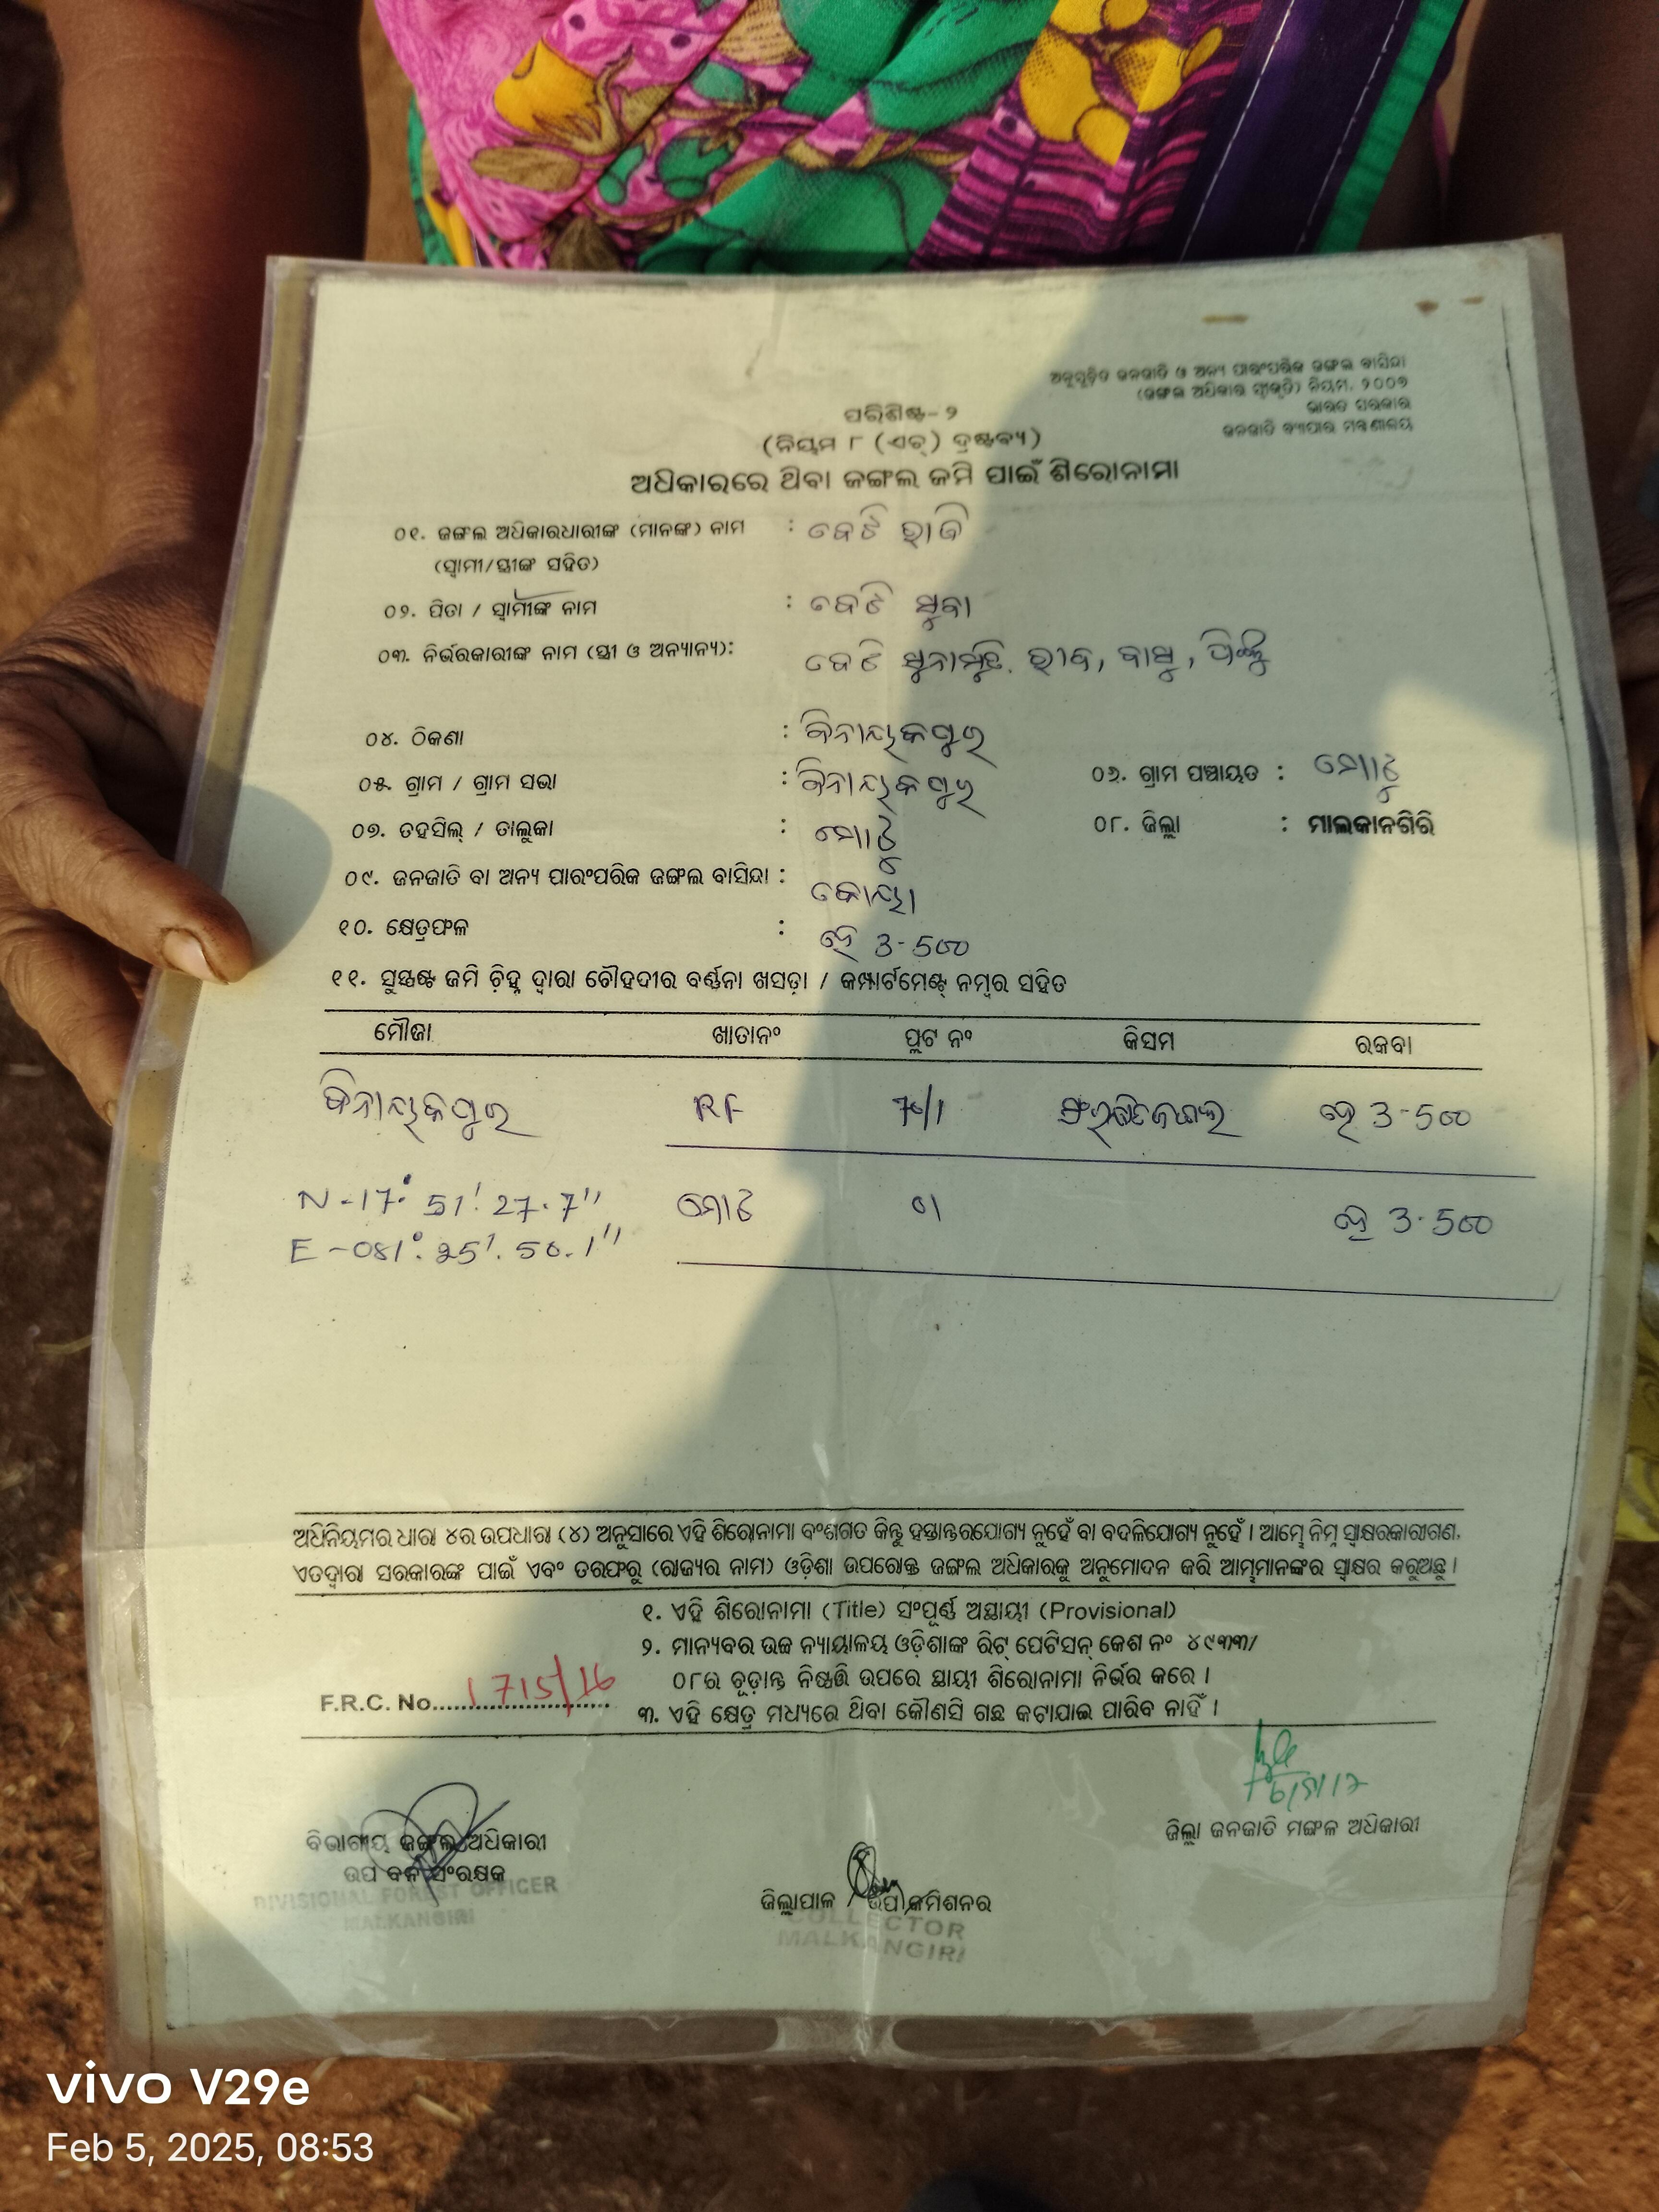 ଅନୁସୂଚିତ ଜନଜାତି ଓ ଅନ୍ୟ ପାରଂପରିକ ଜଙ୍ଗଲ ବାସିନ୍ଦା
(ଜଙ୍ଗଲ ଅଧିକାର ସ୍ୱୀକୃତି) ନିୟମ, ୨୦୦୭
ଭାରତ ସରକାର
ଜନଜାତି ବ୍ୟାପାର ମନ୍ତ୍ରଣାଳୟ
ପରିଶିଷ୍ଟ-୨
(ନିୟମ ୮ (ଏଚ୍) ଦ୍ରଷ୍ଟବ୍ୟ)
ଅଧିକାରରେ ଥିବା ଜଙ୍ଗଲ ଜମି ପାଇଁ ଶିରୋନାମା
୦୧. ଜଙ୍ଗଲ ଅଧିକାରଧାରୀଙ୍କ (ମାନଙ୍କ) ନାମ :
(ସ୍ୱାମୀ/ସ୍ତ୍ରୀଙ୍କ ସହିତ)
୦୨. ପିତା / ସ୍ୱାମୀଙ୍କ ନାମ :
୦୩. ନିର୍ଭରକାରୀଙ୍କ ନାମ (ସ୍ତ୍ରୀ ଓ ଅନ୍ୟାନ୍ୟ):
୦୪. ଠିକଣା : ବିନାୟକପୁର
୦୫. ଗ୍ରାମ / ଗ୍ରାମ ସଭା : ବିନାୟକପୁର ୦୬. ଗ୍ରାମ ପଞ୍ଚାୟତ : ମୋଟୁ
୦୭. ତହସିଲ୍ / ତାଲୁକା : ମୋଟୁ ୦୮. ଜିଲ୍ଲା : ମାଲକାନଗିରି
୦୯. ଜନଜାତି ବା ଅନ୍ୟ ପାରଂପରିକ ଜଙ୍ଗଲ ବାସିନ୍ଦା : କୋୟା
୧୦. କ୍ଷେତ୍ରଫଳ : ହେ 3-500
୧୧. ସୁସ୍ପଷ୍ଟ ଜମି ଚିହ୍ନ ଦ୍ୱାରା ଚୌହଦୀର ବର୍ଣ୍ଣନା ଖସଡ଼ା / କମ୍ପାର୍ଟମେଣ୍ଟ୍ ନମ୍ବର ସହିତ
ମୌଜା ଖାତାନଂ ପ୍ଲଟ ନଂ କିସମ ରକବା
ବିନାୟକପୁର RF ହେ 3-500
N-17° 51' 27.7" ମୋଟ ୦୧ ହେ 3.500
E-081°. 25'. 50.1"
ଅଧିନିୟମର ଧାରା ୪ର ଉପଧାରା (୪) ଅନୁସାରେ ଏହି ଶିରୋନାମା ବଂଶଗତ କିନ୍ତୁ ହସ୍ତାନ୍ତରଯୋଗ୍ୟ ନୁହେଁ ବା ବଦଳିଯୋଗ୍ୟ ନୁହେଁ । ଆମ୍ଭେ ନିମ୍ନ ସ୍ୱାକ୍ଷରକାରୀଗଣ,
ଏତଦ୍ୱାରା ସରକାରଙ୍କ ପାଇଁ ଏବଂ ତରଫରୁ (ରାଜ୍ୟର ନାମ) ଓଡ଼ିଶା ଉପରୋକ୍ତ ଜଙ୍ଗଲ ଅଧିକାରକୁ ଅନୁମୋଦନ କରି ଆମ୍ଭମାନଙ୍କର ସ୍ୱାକ୍ଷର କରୁଅଛୁ ।
୧. ଏହି ଶିରୋନାମା (Title) ସଂପୂର୍ଣ୍ଣ ଅସ୍ଥାୟୀ (Provisional)
୨. ମାନ୍ୟବର ଉଚ୍ଚ ନ୍ୟାୟାଳୟ ଓଡ଼ିଶାଙ୍କ ରିଟ୍ ପେଟିସନ୍ କେଶ ନଂ ୪୯୩୩/
୦୮ର ଚୂଡ଼ାନ୍ତ ନିଷ୍ପତ୍ତି ଉପରେ ସ୍ଥାୟୀ ଶିରୋନାମା ନିର୍ଭର କରେ ।
F.R.C. No. 1715/16
୩. ଏହି କ୍ଷେତ୍ର ମଧ୍ୟରେ ଥିବା କୌଣସି ଗଛ କଟାଯାଇ ପାରିବ ନାହିଁ ।
ଜିଲ୍ଲା ଜନଜାତି ମଙ୍ଗଳ ଅଧିକାରୀ
ବିଭାଗୀୟ ଜଙ୍ଗଲ ଅଧିକାରୀ
ଉପ ବନ ସଂରକ୍ଷକ
DIVISIONAL FOREST OFFICER
MALKANGIRI
ଜିଲ୍ଲାପାଳ / ଉପ କମିଶନର
COLLECTOR
MALKANGIRI
vivo V29e
Feb 5, 2025, 08:53